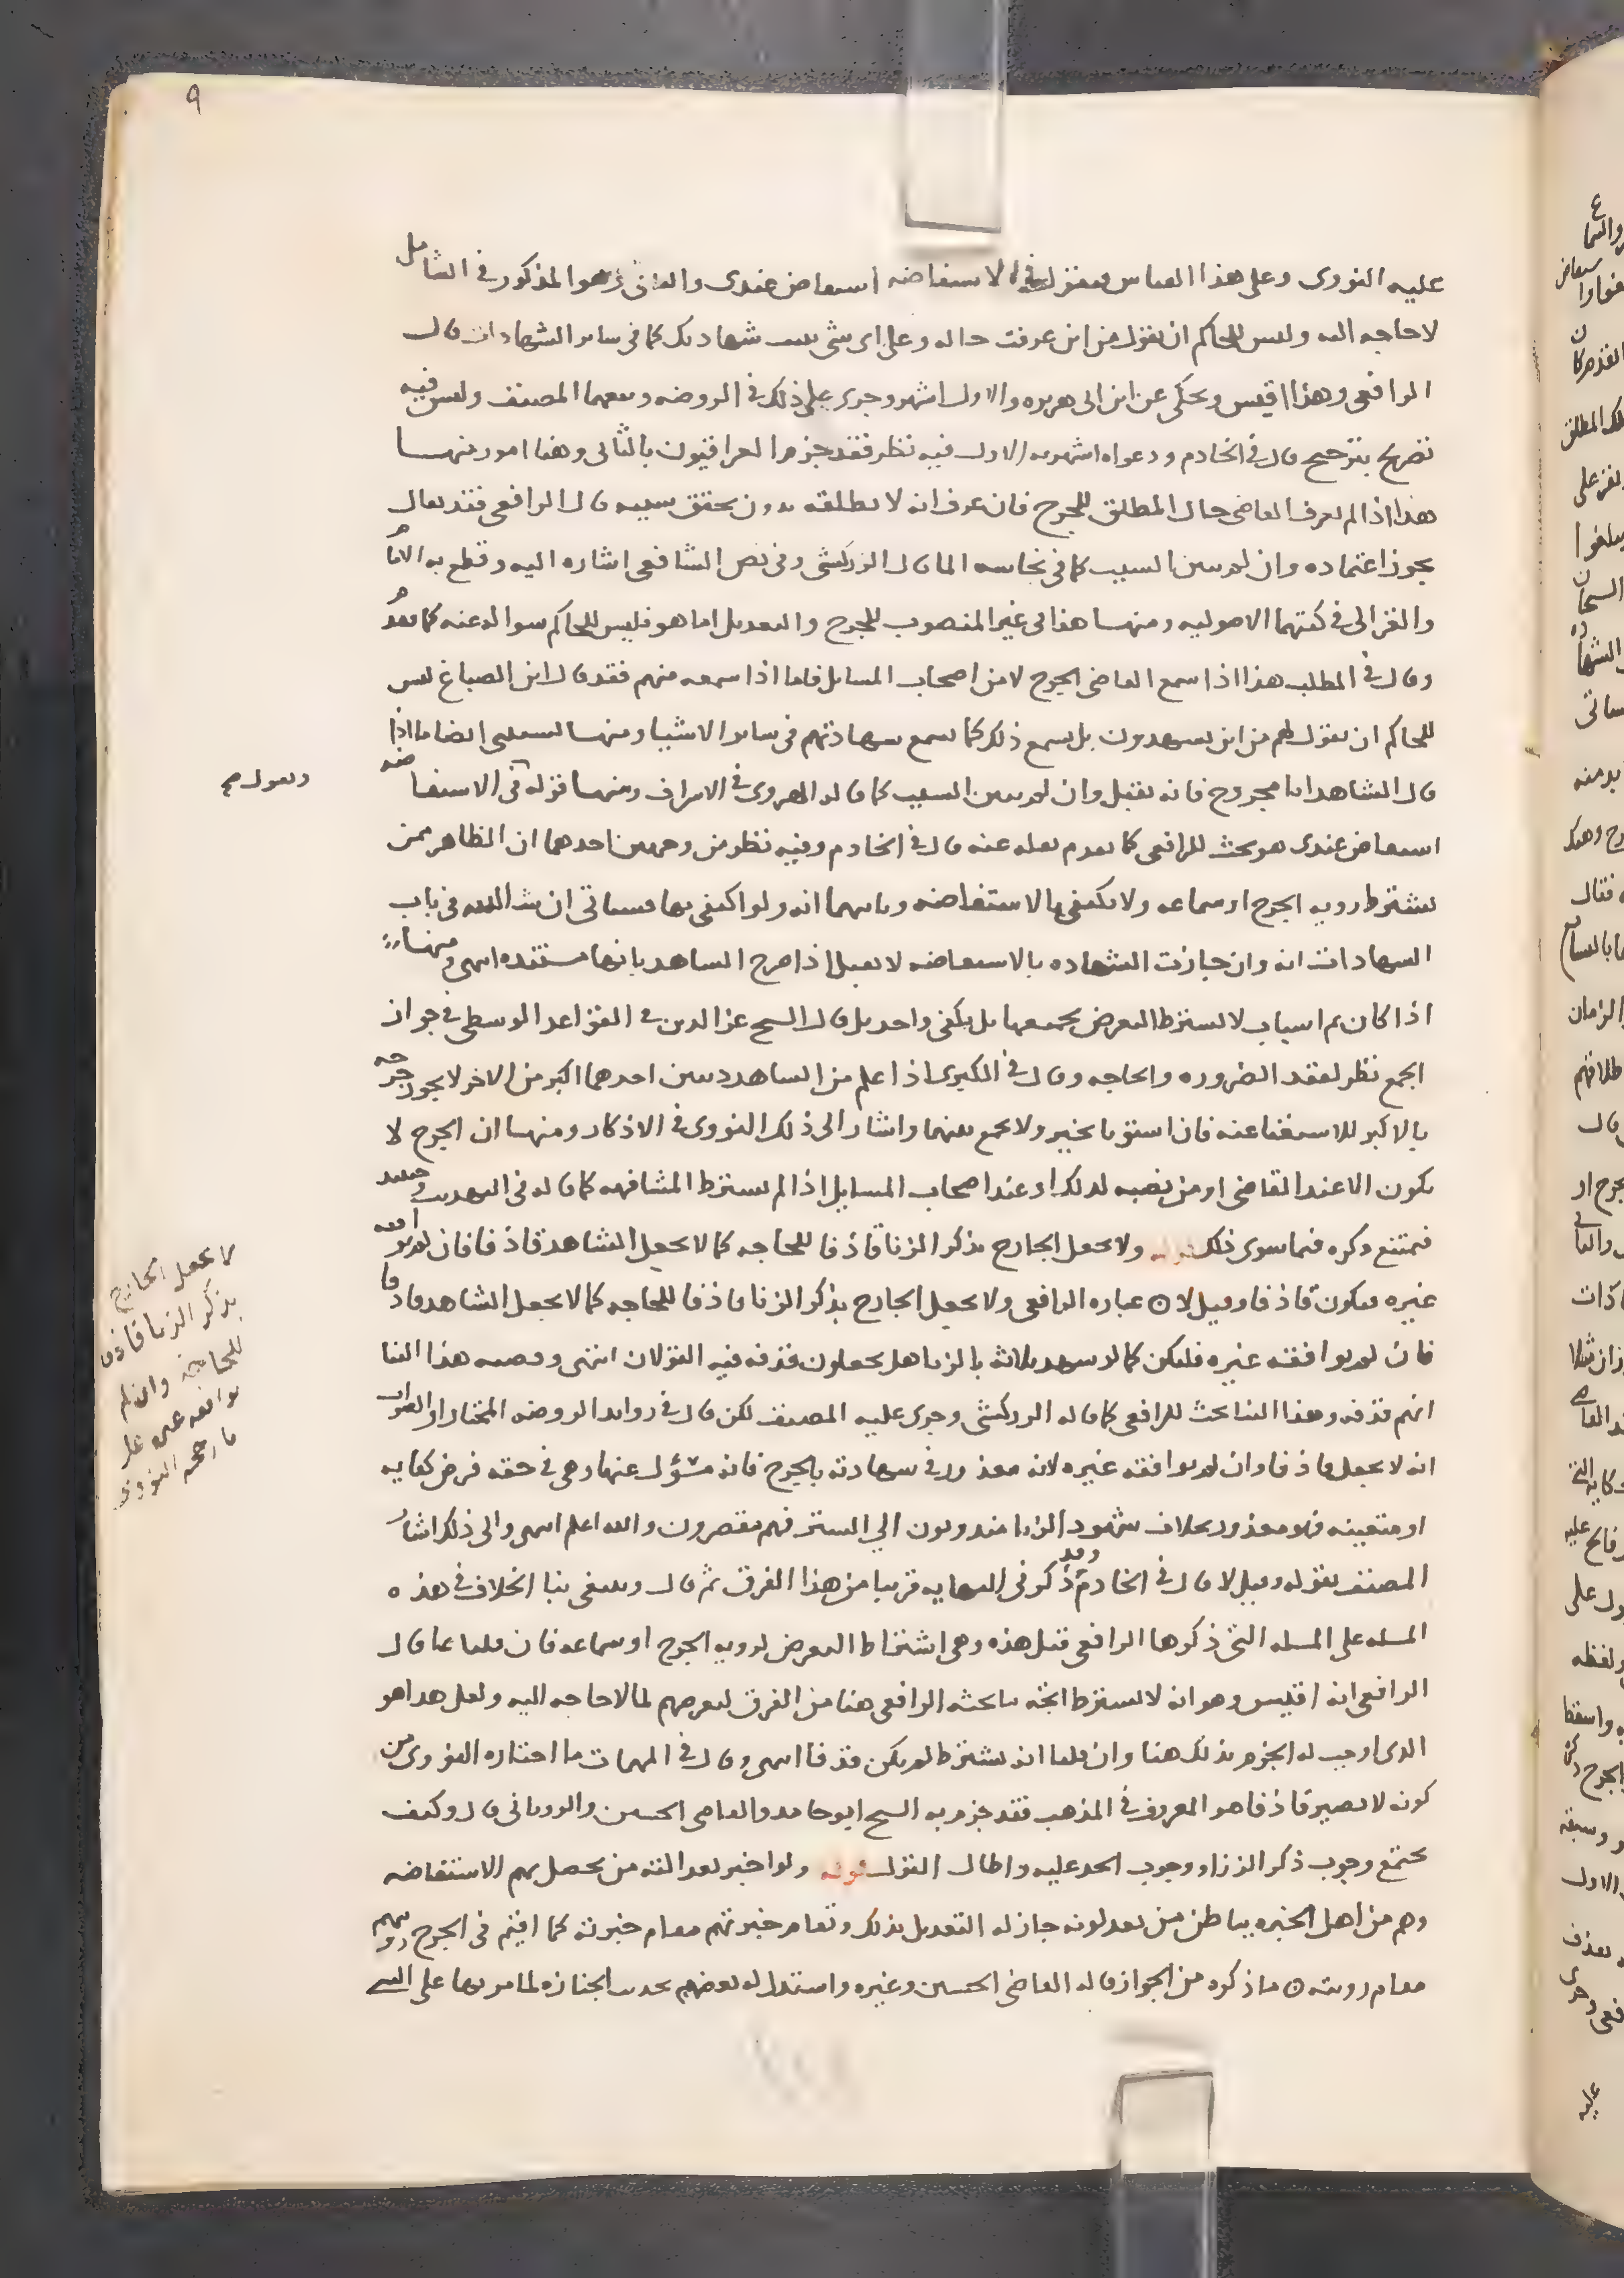 ٩
عليه النووى وعلى هذا القياس يقول في الاستفاضه استفاض عندى والثانى وهو المذكور فى الشامل
لا حاجه اليه وليس للحاكم ان يقول من اين عرفت حاله وعلى اى شى بنيت شهادتك كما فى ساير الشهادات قال
الرافعى وهذا اقيس ويحكى عن ابن ابى هريره والاول اشهر وجرى على ذلك فى الروضه وتبعهما المصنف وليس فيه
تصريح بترجيح قال فى الخادم ودعواه اشهريه الاول فيه نظر فقد جزم العراقيون بالثانى وهنا امور منها
هذا اذا لم يعرف القاضى حال المطلق للجرح فان عرف انه لا يطلقه بدون تحقق سببه قال الرافعى فقد يقال
يجوز اعتماده وان لم يبين السبب كما فى نجاسه الما قال الزركشى وفى نص الشافعى اشاره اليه وقطع به الامام
والغزالى فى كتبهما الاصوليه ومنها هذا فى غير المنصوب للجرح والتعديل اما هو فليس للحاكم سواله عنه كما تقدم
وقال فى المطلب هذا اذا سمع القاضى الجرح لا من اصحاب المسايل فاما اذا سمعه منهم فقد قال ابن الصباغ ليس
للحاكم ان يقول لهم من اين تشهدون بل يسمع ذلك كما يسمع شهادتهم فى ساير الاشيا ومنها يستثنى ايضا ما اذا
قال الشاهد انا مجروح فانه يقبل وان لم يبين السبب كما قاله الهروى فى الاشراف ومنها قوله فى الاستفاضه
ويقول صح
استفاض عندى هو بحث للرافعى كما تقدم نقله عنه قال فى الخادم وفيه نظر من وجهين احدهما ان الظاهر ممن
يشترط رويه الجرح او سماعه ولا يكتفى بالاستفاضه وثانيهما انه ولو اكتفى بها فسياتى ان شا الله فى باب
الشهادات انه وان جازت الشهاده بالاستفاضه لا تقبل اذا صرح الشاهد بانها مستنده انتهى ومنها
اذا كان ثم اسباب لا يشترط التعرض لجميعها بل يكفى واحد بل قال الشيخ عز الدين فى القواعد الوسطى فى جواز
الجمع نظر لفقد الضروره والحاجه وقال فى الكبرى اذا علم من الشاهد ذنبين احدهما اكبر من الاخر لا يجوز جرحه
بالاكبر للاستغنا عنه فان استويا تخير ولا يجمع بينهما واشار الى ذلك النووى فى الاذكار ومنها ان الجرح لا
يكون الا عند القاضى او من نصبه لذلك او عند اصحاب المسايل اذا لم يشترط المشافهه كما قاله فى التهذيب وحينيذ
فيمتنع ذكره فيما سوى ذلك قوله ولا يجعل الجارح بذكر الزنا قاذفا للحاجه كما لا يجعل الشاهد قاذفا فان لم يوافقه
غيره فيكون قاذفا وقيل لا ۝ عباره الرافعى ولا يجعل الجارح بذكر الزنا قاذفا للحاجه كما لا يجعل الشاهد قاذفا
فان لم يوافقه غيره فليكن كما لو شهد ثلاثه بالزنا هل يجعلون قذفه فيه القولان انتهى وقضيه هذا البنا
انهم قذفه وهذا البنا بحث للرافعى كما قاله الزركشى وجرى عليه المصنف لكن قال فى زوايد الروضه المختار او الصواب
انه لا يجعل قاذفا وان لم يوافقه غيره لانه معذور فى شهادته بالجرح فانه مسؤل عنها وهى فى حقه فرض كفايه
او متعينه فهو معذور بخلاف شهود الزنا مندوبون الى الستر فهم مقصرون والله اعلم انتهى والى ذلك اشار
المصنف بقوله وقيل لا قال فى الخادم وقد ذكر فى النهايه قريبا من هذا الفرق ثم قال وينبغى بنا الخلاف فى هذه
المسله على المسله التى ذكرها الرافعى قبل هذه وهى اشتراط التعرض لرويه الجرح او سماعه فان قلنا بما قال
الرافعى انه اقيس وهو انه لا يشترط اتجه ما بحثه الرافعى هنا من الفرق لتعرضهم لما لا حاجه اليه ولعل هذا هو
الذى اوجب له الجزم بذلك هنا وان قلنا انه يشترط لم يكن قذفا انتهى وقال فى المهمات ما اختاره النووى من
كونه لا يصير قاذفا هو المعروف فى المذهب فقد جزم به الشيخ ابو حامد والقاضى الحسين والرويانى قال وكيف
يجتمع وجوب ذكر الزنا ووجوب الحد عليه واطال القول قوله ولو اخبر بعدالته من يحصل بهم الاستفاضه
وهم من اهل الخبره بباطن من يعدلونه جاز له التعديل بذلك وتقام خبرتهم مقام خبرته كما اقيم فى الجرح رويتهم
مقام رويته ۝ ما ذكره من الجواز قاله القاضى الحسين وغيره واستدل له بعضهم بحديث الجنازه لما مر بها على النبى
لا يجعل الجارح
بذكر الزنا قاذفا
للحاجه وان لم
يوافقه غيره على
ما رجحه النووى